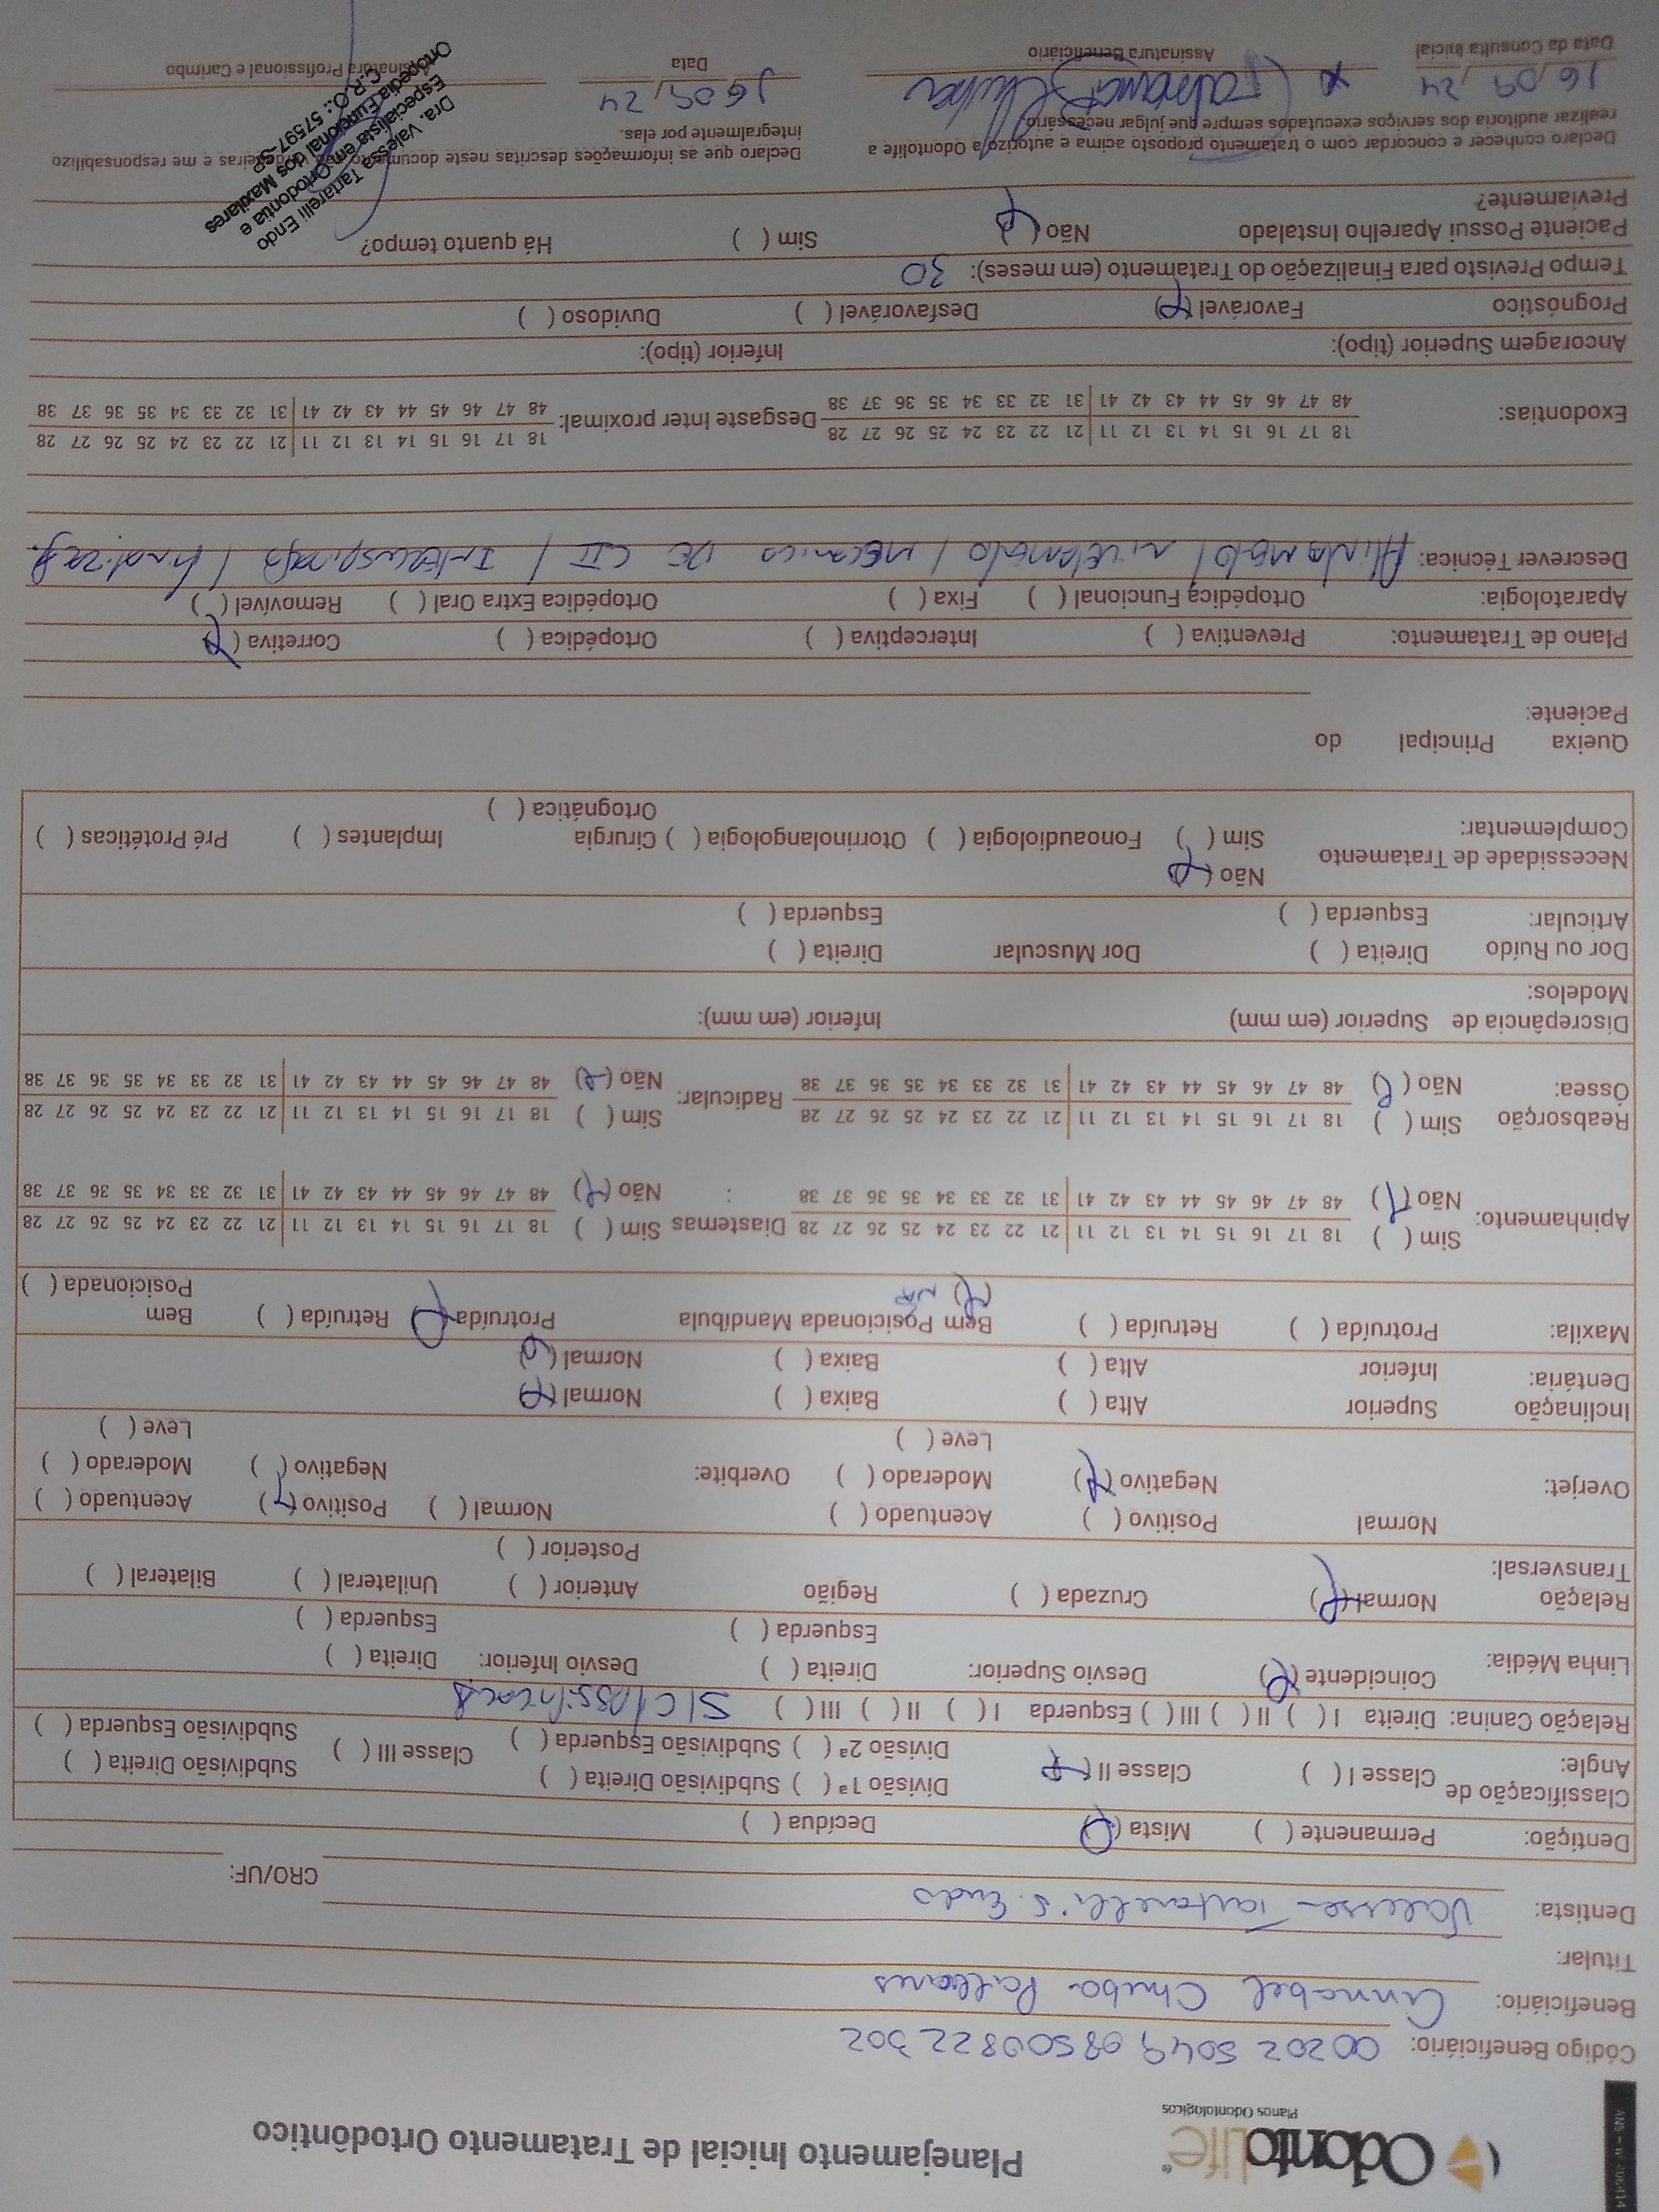 OdontoLife®
Planos Odontológicos
Planejamento Inicial de Tratamento Ortodôntico
Código Beneficiário: 00202 5049 08500822302
Beneficiário: Annabel Chuba
Titular:
Dentista: Valessa Tartarelli S. Endo CRO/UF:
Dentição: Permanente ( ) Mista (x) Decídua ( )
Classificação de Angle: Classe I ( ) Classe II (x) Divisão 1ª ( ) Subdivisão Direita ( ) Divisão 2ª ( ) Subdivisão Esquerda ( ) Classe III ( ) Subdivisão Direita ( ) Subdivisão Esquerda ( )
Relação Canina: Direita I ( ) II ( ) III ( ) Esquerda I ( ) II ( ) III ( ) S/C
Linha Média: Coincidente (x) Desvio Superior: Direita ( ) Esquerda ( ) Desvio Inferior: Direita ( ) Esquerda ( )
Relação Transversal: Normal (x) Cruzada ( ) Região Anterior ( ) Posterior ( ) Unilateral ( ) Bilateral ( )
Overjet: Normal Positivo ( ) Negativo (x) Acentuado ( ) Moderado ( ) Leve ( ) Overbite: Normal ( ) Positivo (x) Negativo ( ) Acentuado ( ) Moderado ( ) Leve ( )
Inclinação Dentária: Superior Alta ( ) Baixa ( ) Normal (x)
Inferior Alta ( ) Baixa ( ) Normal (x)
Maxila: Protruída ( ) Retruída ( ) Bem Posicionada (x) Mandíbula Protruída (x) Retruída ( ) Bem Posicionada ( )
Apinhamento: Sim ( ) 18 17 16 15 14 13 12 11 21 22 23 24 25 26 27 28 Diastemas Sim ( ) 18 17 16 15 14 13 12 11 21 22 23 24 25 26 27 28
Não (x) 48 47 46 45 44 43 42 41 31 32 33 34 35 36 37 38 : Não (x) 48 47 46 45 44 43 42 41 31 32 33 34 35 36 37 38
Reabsorção Sim ( ) 18 17 16 15 14 13 12 11 21 22 23 24 25 26 27 28 Radicular: Sim ( ) 18 17 16 15 14 13 12 11 21 22 23 24 25 26 27 28
Óssea: Não (x) 48 47 46 45 44 43 42 41 31 32 33 34 35 36 37 38 Não (x) 48 47 46 45 44 43 42 41 31 32 33 34 35 36 37 38
Discrepância de Modelos: Superior (em mm) Inferior (em mm):
Dor ou Ruído Articular: Direita ( ) Esquerda ( ) Dor Muscular Direita ( ) Esquerda ( )
Necessidade de Tratamento Complementar: Não (x) Sim ( ) Fonoaudiologia ( ) Otorrinolangologia ( ) Cirurgia Ortognática ( ) Implantes ( ) Pré Protéticas ( )
Queixa Principal do Paciente:
Plano de Tratamento: Preventiva ( ) Interceptiva ( ) Ortopédica ( ) Corretiva (x)
Aparatologia: Ortopédica Funcional ( ) Fixa ( ) Ortopédica Extra Oral ( ) Removível ( )
Descrever Técnica: Alinhamento / nivelamento / mecanica de CII / Intercuspidação /
Exodontias: 18 17 16 15 14 13 12 11 21 22 23 24 25 26 27 28 Desgaste Inter proximal: 18 17 16 15 14 13 12 11 21 22 23 24 25 26 27 28
48 47 46 45 44 43 42 41 31 32 33 34 35 36 37 38 48 47 46 45 44 43 42 41 31 32 33 34 35 36 37 38
Ancoragem Superior (tipo): Inferior (tipo):
Prognóstico Favorável (x) Desfavorável ( ) Duvidoso ( )
Tempo Previsto para Finalização do Tratamento (em meses): 30
Paciente Possui Aparelho Instalado Previamente? Não (x) Sim ( ) Há quanto tempo?
Declaro conhecer e concordar com o tratamento proposto acima e autorizo a Odontolife a
realizar auditoria dos serviços executados sempre que julgar necessário.
Declaro que as informações descritas neste documento são verdadeiras e me responsabilizo
integralmente por elas.
Dra. Valessa Tartarelli Endo
Especialista em Ortodontia e
Ortopedia Funcional dos Maxilares
C.R.O.: 57597-SP
16, 09, 24 x 16, 09, 24
Data da Consulta Inicial Assinatura Beneficiário Data Assinatura Profissional e Carimbo